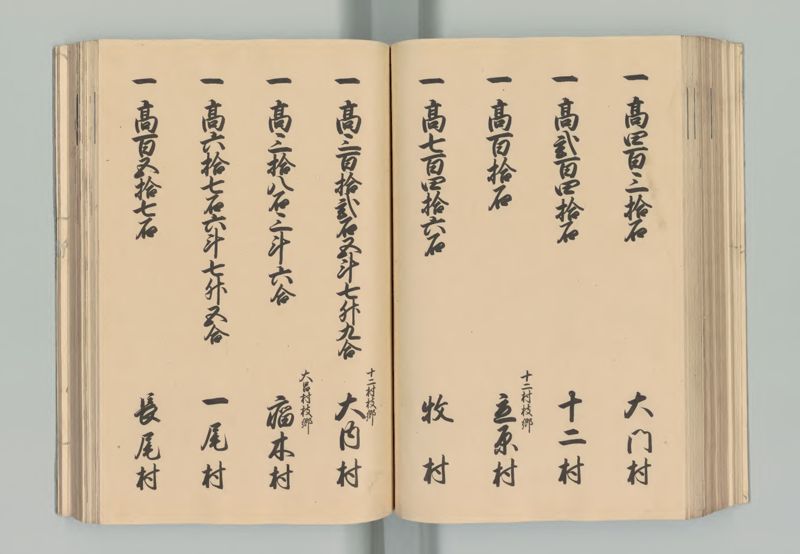 一 高四百三拾石 大門村
一 高弐百四拾石 十二村
一 高百拾石 十二村枝郷 立原村
一 高七百四拾六石 牧村
一 高三百拾弐石五斗七升九合 十二村枝郷 大内村
一 高三拾八石三斗六合 大呂村枝郷 瘤木村
一 高六拾七石六斗七升五合 一尾村
一 高百五拾七石 長尾村